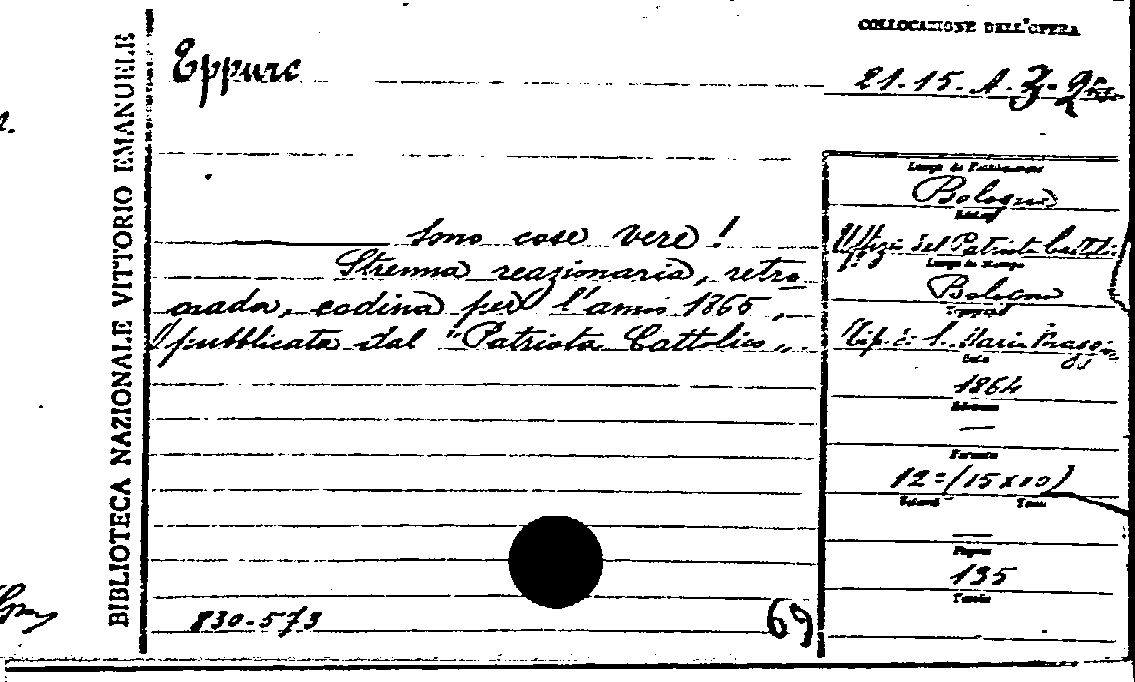 BIBLIOTECA NAZIONALE VITTORIO EMANUELE
COLLOCAZIONE DELL'OPERA
Eppure
21.15.A.
Sono cose vere!
Strenna reazionaria, retro
grada, codina per l'anno 1865,
pubblicata dal "Patriota Cattolico„.
Bologna
Uffizio del Patriota Cattol.
Bologna
Tip. di S. Maria Maggio
Data
1864
Edizione
—
Formato
12=(15x10)
Volumi
Tomi
—
Pagine
135
Tavole
830-573
69